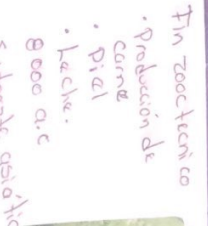 Fin zootecnico
• Producción de
carne
• Piel
• Leche.
8000 a.c